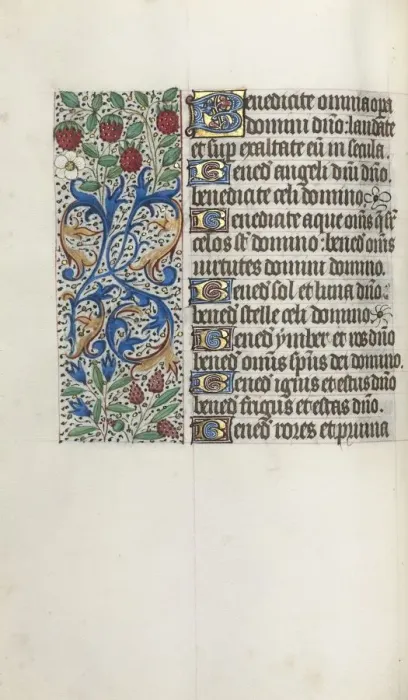 Benedicite omnia opa
domini dño: laudate
et sup exaltate eũ in secula.
Bened angeli dñi dño.
benedicite celi domino.
Benedicite aque oms q̃ st
celos st̃ domino: bened oms
uirtutes domini domino.
Bened sol et luna dño:
bened stelle celi domino.
Bened ymber et ros dño
bened omis sp̃us dei domino.
Bened ignis et estus dño
bened frigus et estas dño.
Bened rores et pruina